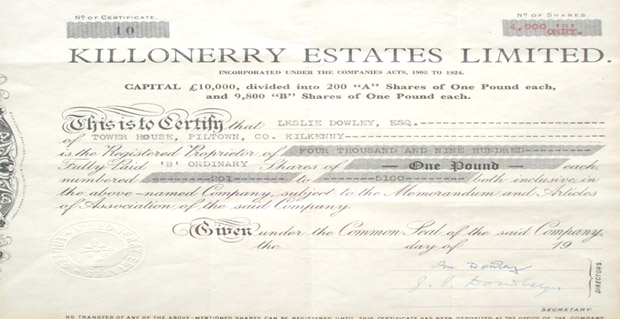 No OF CERTIFICATE. No OF SHARES.
10 4,900 'B'
ORDY.
KILLONERRY ESTATES LIMITED.
INCORPORATED UNDER THE COMPANIES ACTS, 1908 TO 1924.
CAPITAL £10,000, divided into 200 "A" Shares of One Pound each,
and 9,800 "B" Shares of One Pound each.
This is to Certify that LESLIE DOWLEY, ESQ.
of TOWER HOUSE, PILTOWN, CO. KILKENNY
is the Registered Proprietor of FOUR THOUSAND AND NINE HUNDRED
Fully Paid 'B' ORDINARY Shares of One Pound each
numbered 201 to 5100 both inclusive in
the above-named Company, subject to the Memorandum and Articles
of Association of the said Company.
Given under the Common Seal of the said Company,
the day of 19
Dowley
Dowley.
DIRECTORS.
SECRETARY.
NO TRANSFER OF ANY OF THE ABOVE-MENTIONED SHARES CAN BE REGISTERED UNTIL THIS CERTIFICATE HAS BEEN DEPOSITED AT THE OFFICE OF THE COMPANY